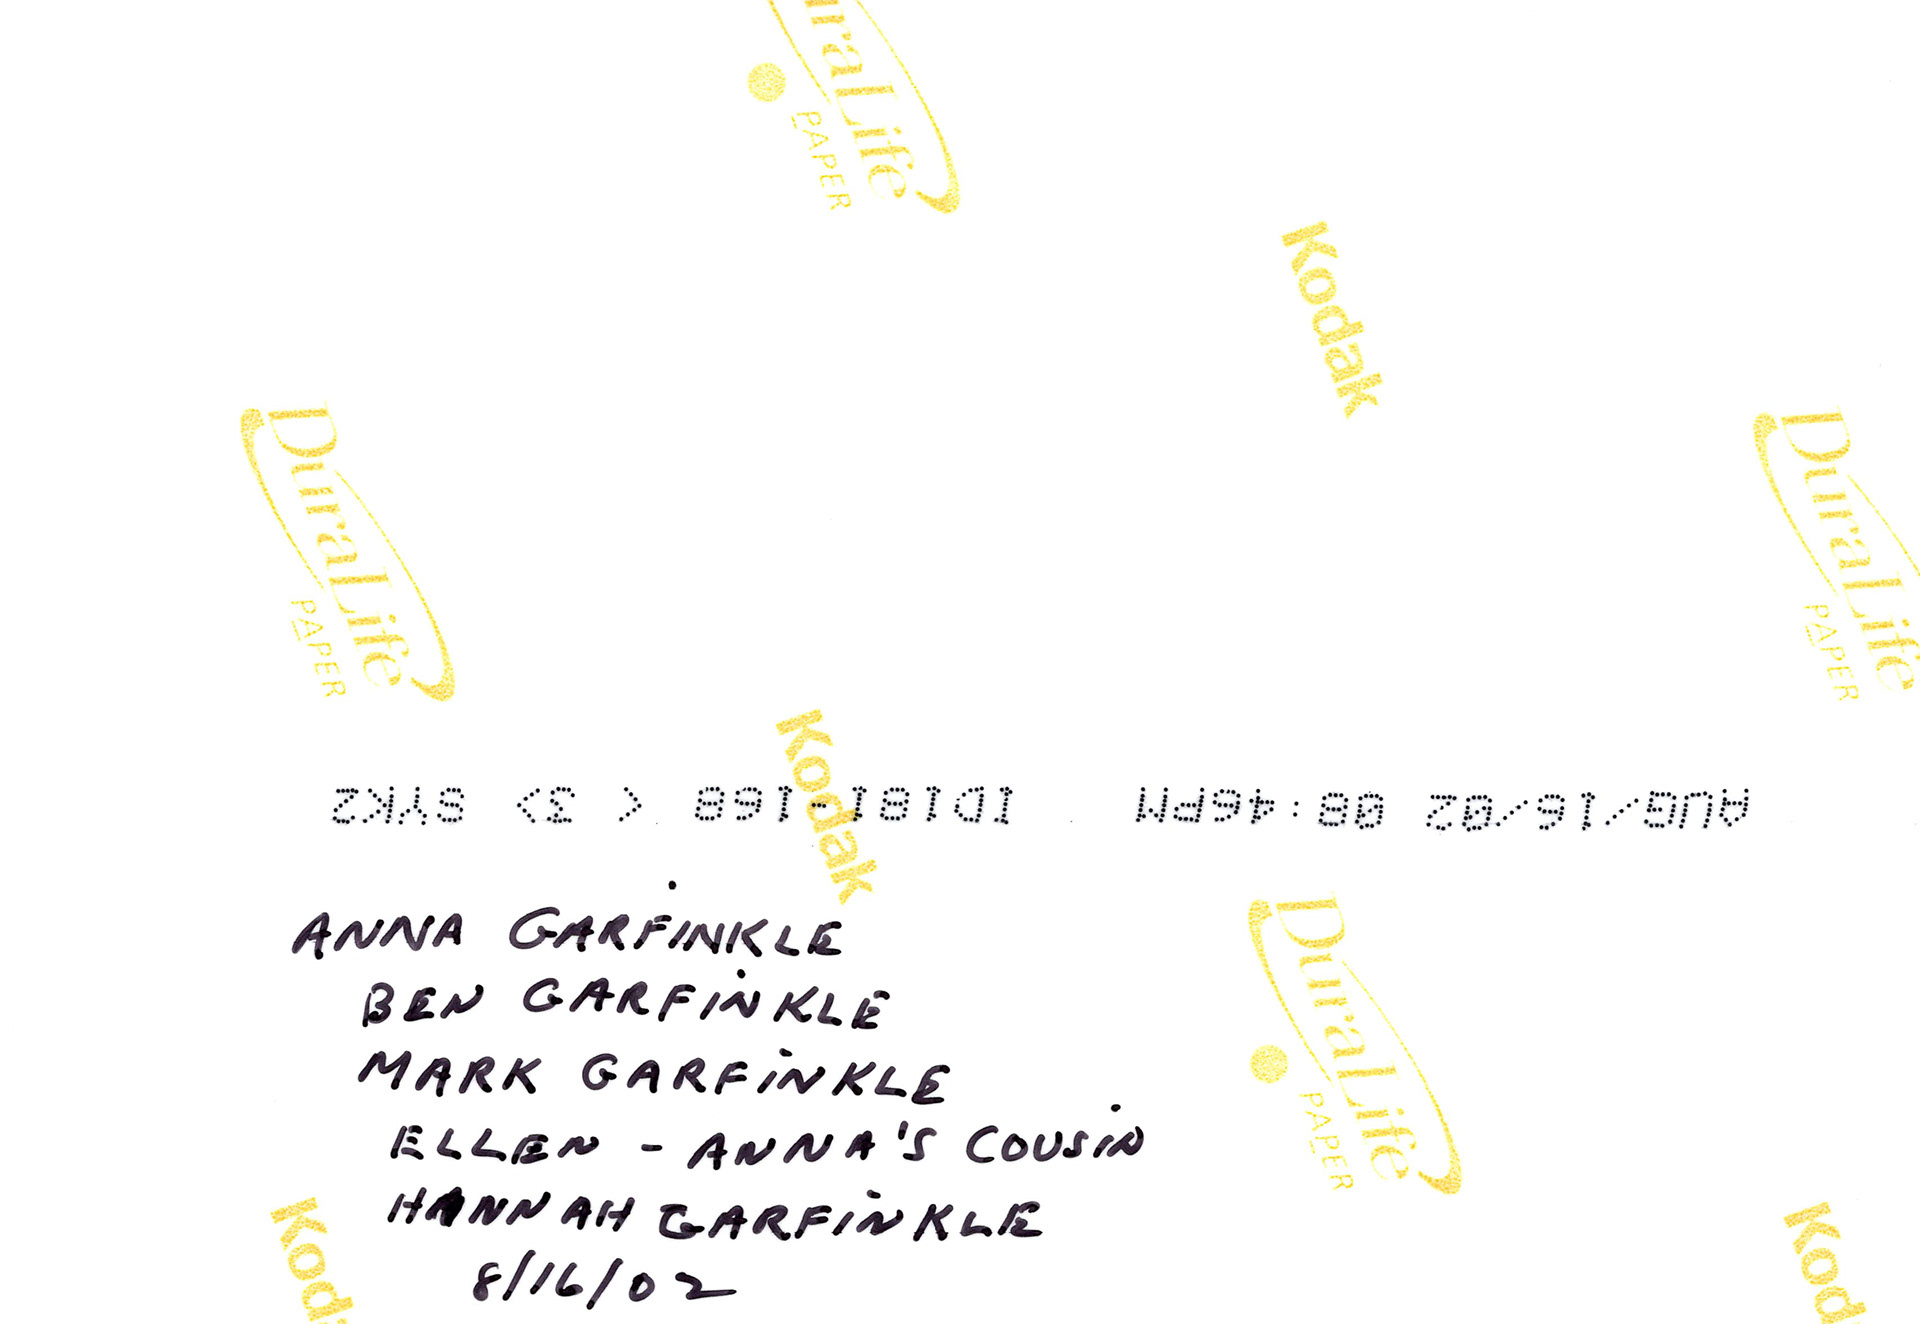 DuraLife
PAPER
Kodak
DuraLife
PAPER
DuraLife
PAPER
Kodak
AUG/16/02 08:46PM ID181-168 < 3> SYKZ
ANNA GARFINKLE
BEN GARFINKLE
MARK GARFINKLE
ELLEN - ANNA'S COUSIN
HANNAH GARFINKLE
8/16/02
DuraLife
PAPER
Kodak
Kodak